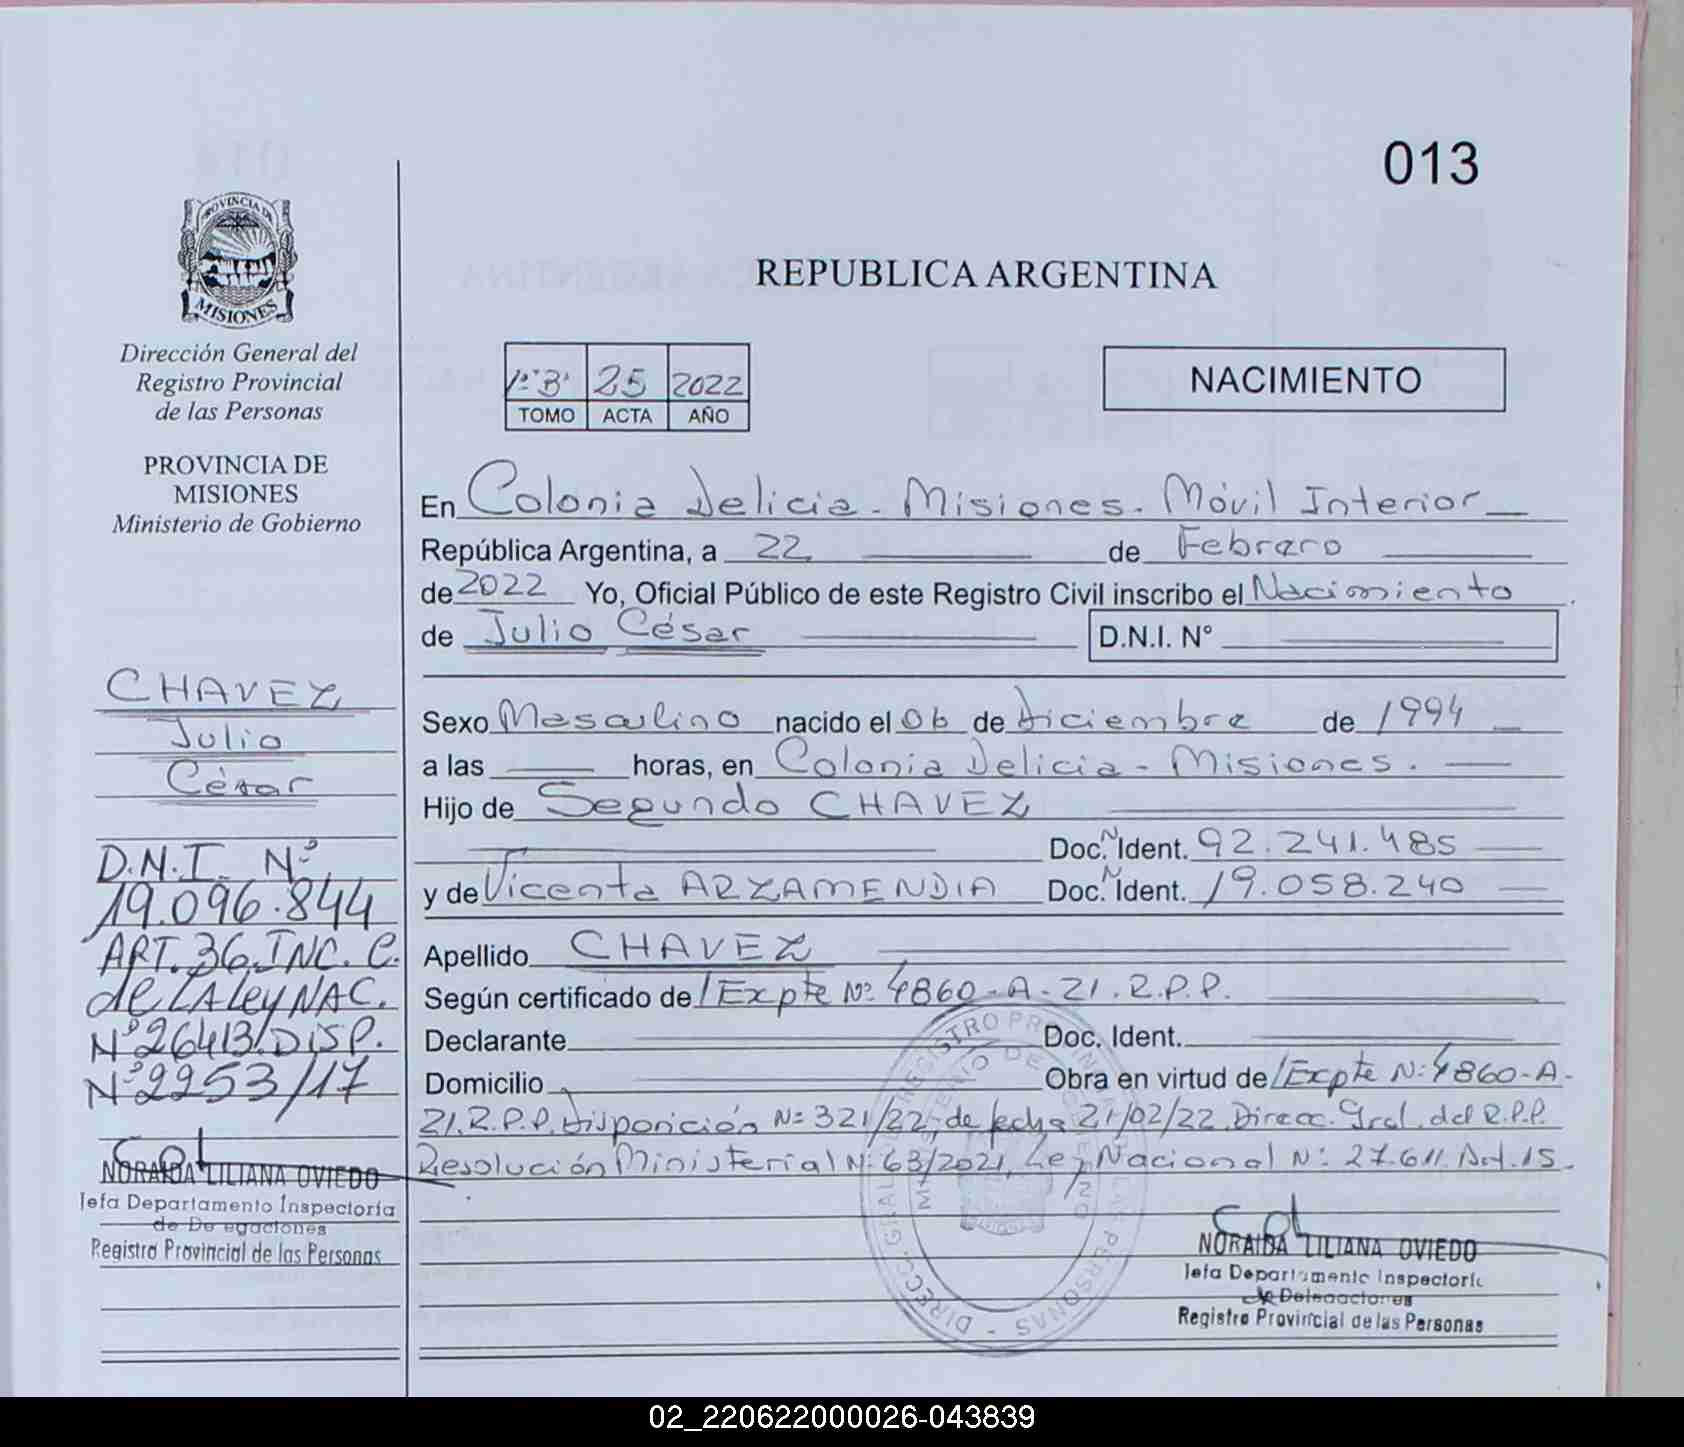 013
PROVINCIA DE
MISIONES
Dirección General del
Registro Provincial
de las Personas
PROVINCIA DE
MISIONES
Ministerio de Gobierno
CHAVEZ
Julio
César
D.N.I. Nº
19.096.844
ART. 36. INC. C.
de LA Ley NAC.
Nº 26413. DISP.
Nº 2253/17
NORAIDA LILIANA OVIEDO
Jefa Departamento Inspectoría
de De egaciones
Registro Provincial de las Personas
REPUBLICA ARGENTINA
1º "B" 25 2022
TOMO ACTA AÑO
NACIMIENTO
En Colonia Delicia - Misiones. Móvil Interior
República Argentina, a 22 de Febrero
de 2022 Yo, Oficial Público de este Registro Civil inscribo el Nacimiento
de Julio César D.N.I. N°
Sexo Masculino nacido el 06 de Diciembre de 1994
a las horas, en Colonia Delicia - Misiones.
Hijo de Segundo CHAVEZ
Doc. N Ident. 92.241.485
y de Vicenta ARZAMENDIA Doc. N Ident. 19.058.240
Apellido CHAVEZ
Según certificado de / Expte Nº 4860-A-21. R.P.P.
Declarante Doc. Ident.
Domicilio Obra en virtud de / Expte Nº 4860-A-
21. R.P.P. Disposición Nº 321/22, de fecha 21/02/22. Direcc. Gral. del R.P.P.
Resolución Ministerial Nº 63/2021, Ley Nacional Nº 27.611. Art. 15.
NORAIDA LILIANA OVIEDO
Jefa Departamento Inspectoría
de Delegaciones
Registro Provincial de las Personas
02_220622000026-043839